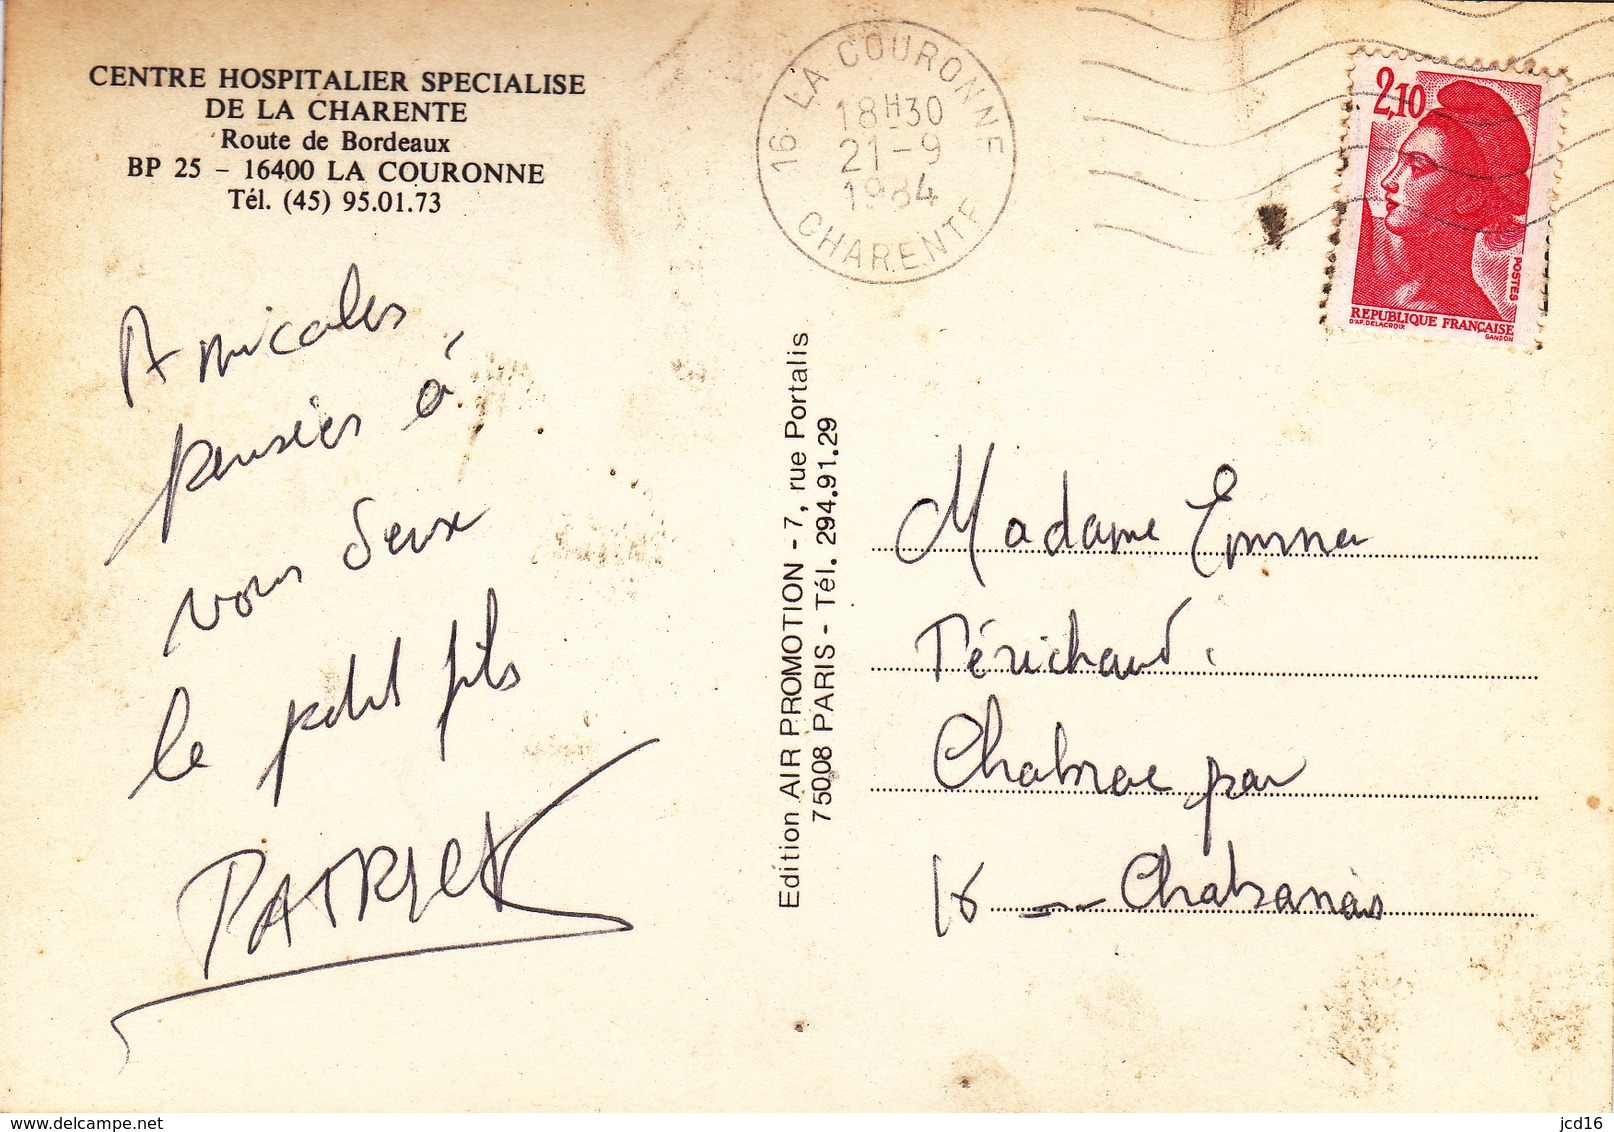 CENTRE HOSPITALIER SPECIALISE
DE LA CHARENTE
Route de Bordeaux
BP 25 – 16400 LA COURONNE
Tél. (45) 95.01.73
16 LA COURONNE
18H30
21-9
1984
CHARENTE
2,10
POSTES
REPUBLIQUE FRANÇAISE
D'AP. DELACROIX
GANDON
Amicales
pensées à
vous deux
le petit fils
PATRICK
Edition AIR PROMOTION - 7, rue Portalis
75008 PARIS - Tél. 294.91.29
Madame Emma
Térichaud.
Chabrac par
16 — Chabanais
www.delcampe.net
jcd16